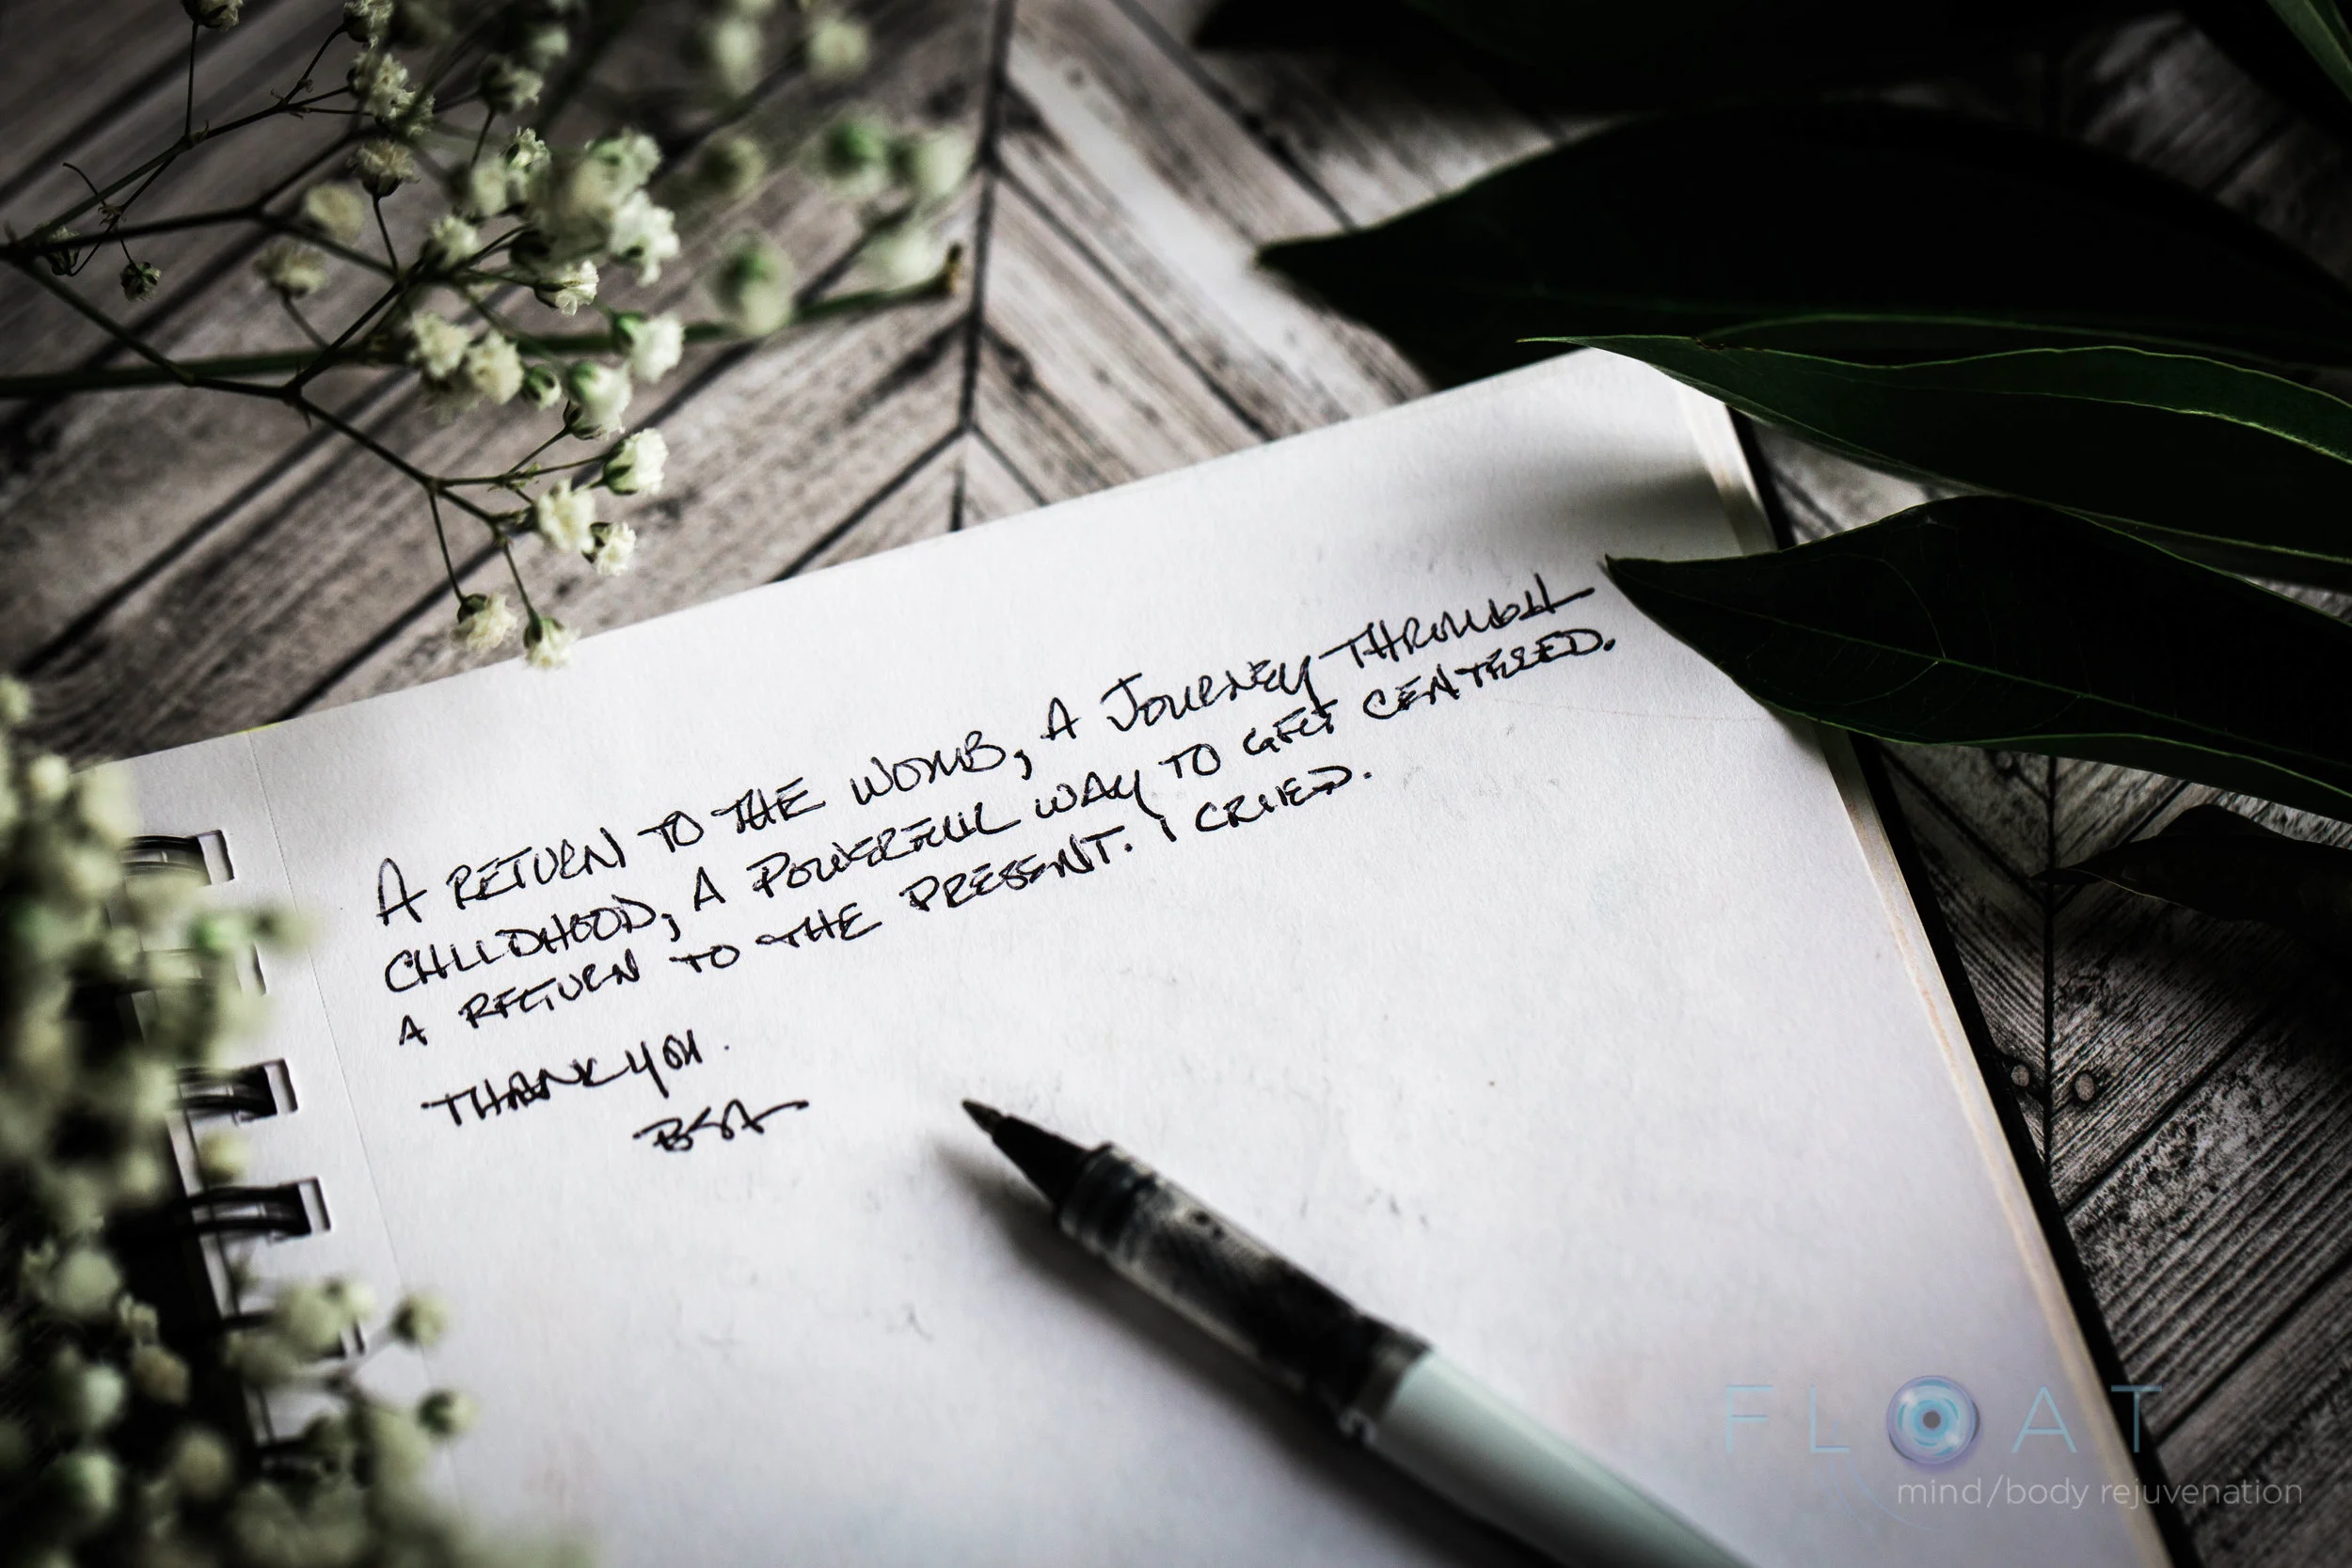 A RETURN TO THE WOMB, A JOURNEY THROUGH
CHILDHOOD, A POWERFUL WAY TO GET CENTERED.
A RETURN TO THE PRESENT. I CRIED.
THANK YOU.
BSA
FLOAT
mind/body rejuvenation